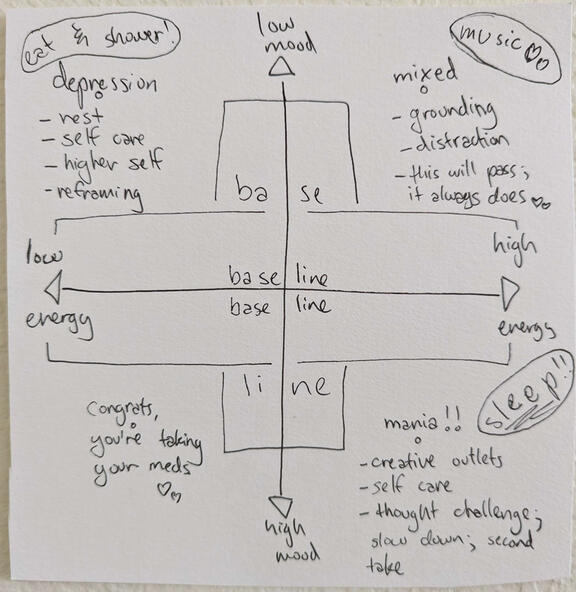 eat & shower!
low
mood
music
depression
- rest
- self care
- higher self
- reframing
mixed
- grounding
- distraction
- this will pass;
it always does
ba se
low
energy
high
energy
base line
base line
li ne
Congrats,
you're taking
your meds
sleep!!
mania!!
- creative outlets
- self care
- thought challenge;
slow down; second
take
high
mood